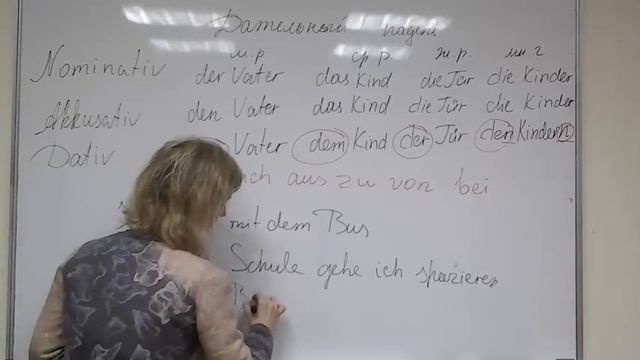 Дательный падеж
м.р. ср.р. ж.р. мн.ч
Nominativ der Vater das Kind die Tür die Kinder
Akkusativ den Vater das Kind die Tür die Kinder
Dativ Vater dem Kind der Tür den Kindern
aus zu von bei
mit dem Bus
Schule gehe ich spazieren